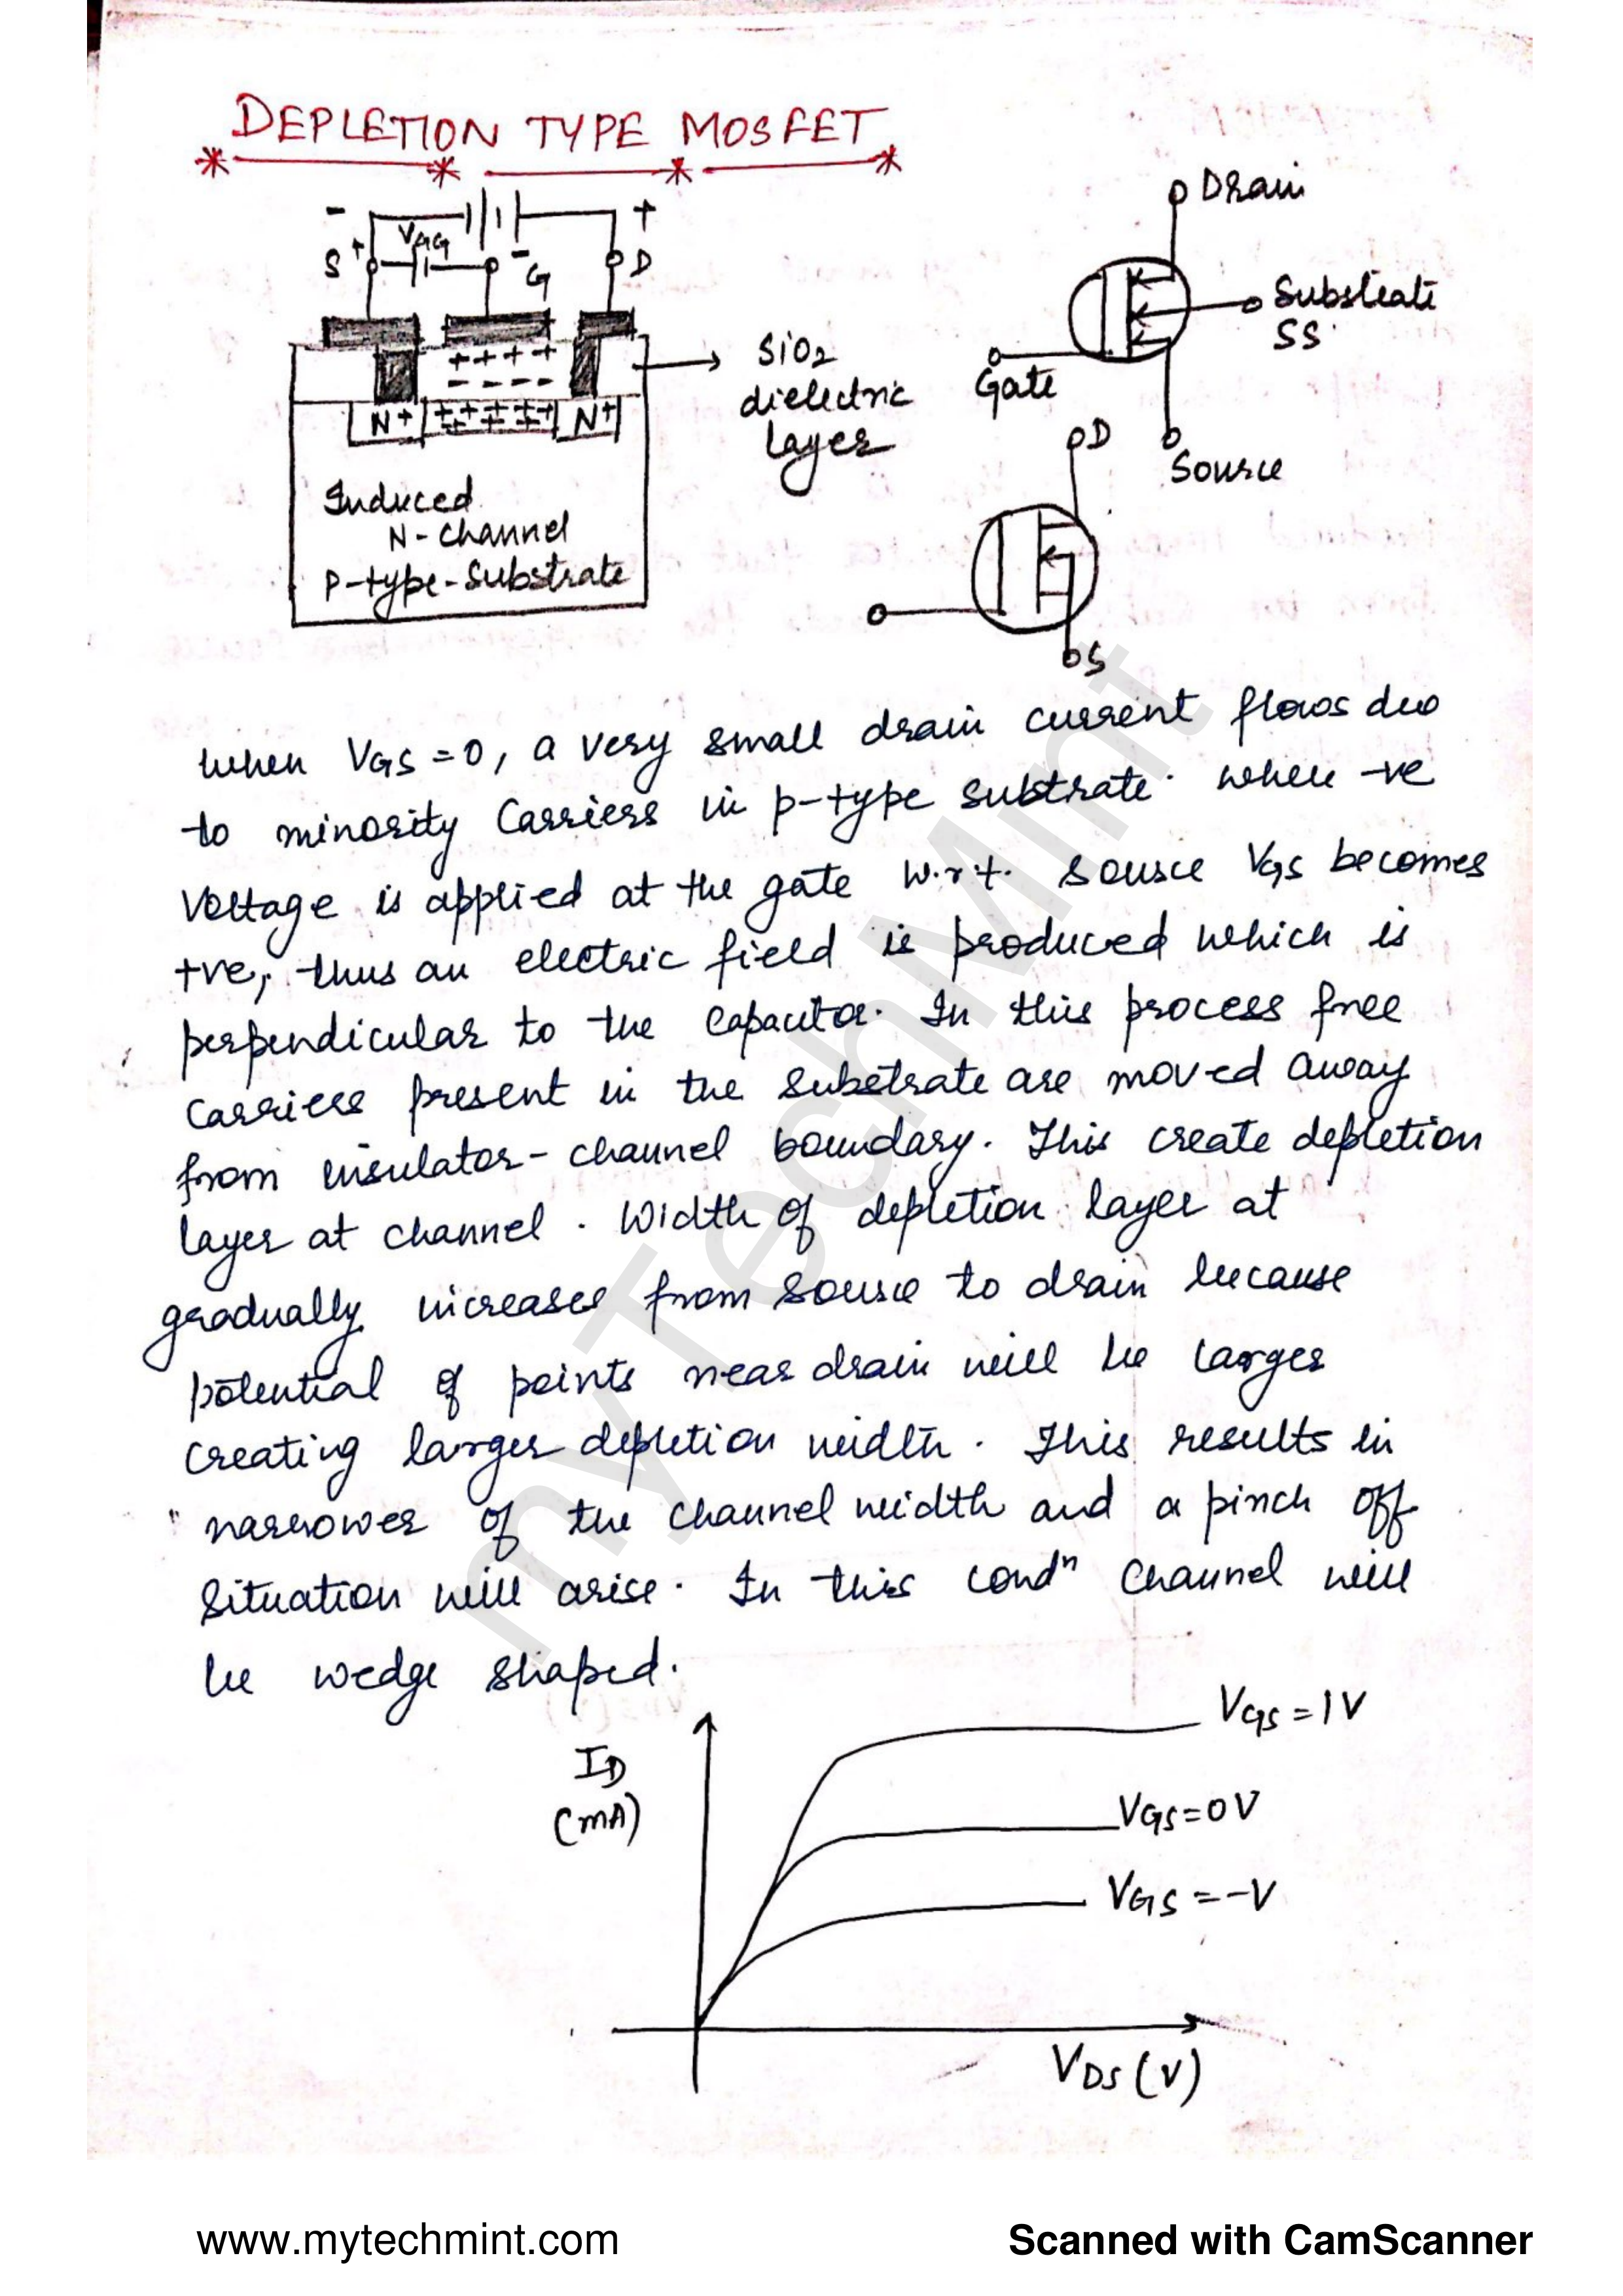 DEPLETION TYPE MOSFET
- +
VGG
S + - G D
+ + + +
- - - -
N+ N+
SiO2
dielectric
layer
Induced
N-Channel
P-type-Substrate
Drain
Substrate
SS
Gate
Source
D
S
when VGS = 0, a very small drain current flows due
to minority Carriers in p-type substrate. when -ve
Voltage is applied at the gate w.r.t. source VGS becomes
+ve, thus an electric field is produced which is
perpendicular to the capacitor. In this process free
carriers present in the substrate are moved away
from insulator-channel boundary. This create depletion
layer at channel. Width of depletion layer at
gradually increases from source to drain because
potential of points near drain will be larger
creating larger depletion width. This results in
narrower of the channel width and a pinch off
situation will arise. In this condn channel will
be wedge shaped.
ID
(mA)
VGS = 1V
VGS = 0V
VGS = -V
VDS (V)
myTechMint
www.mytechmint.com Scanned with CamScanner